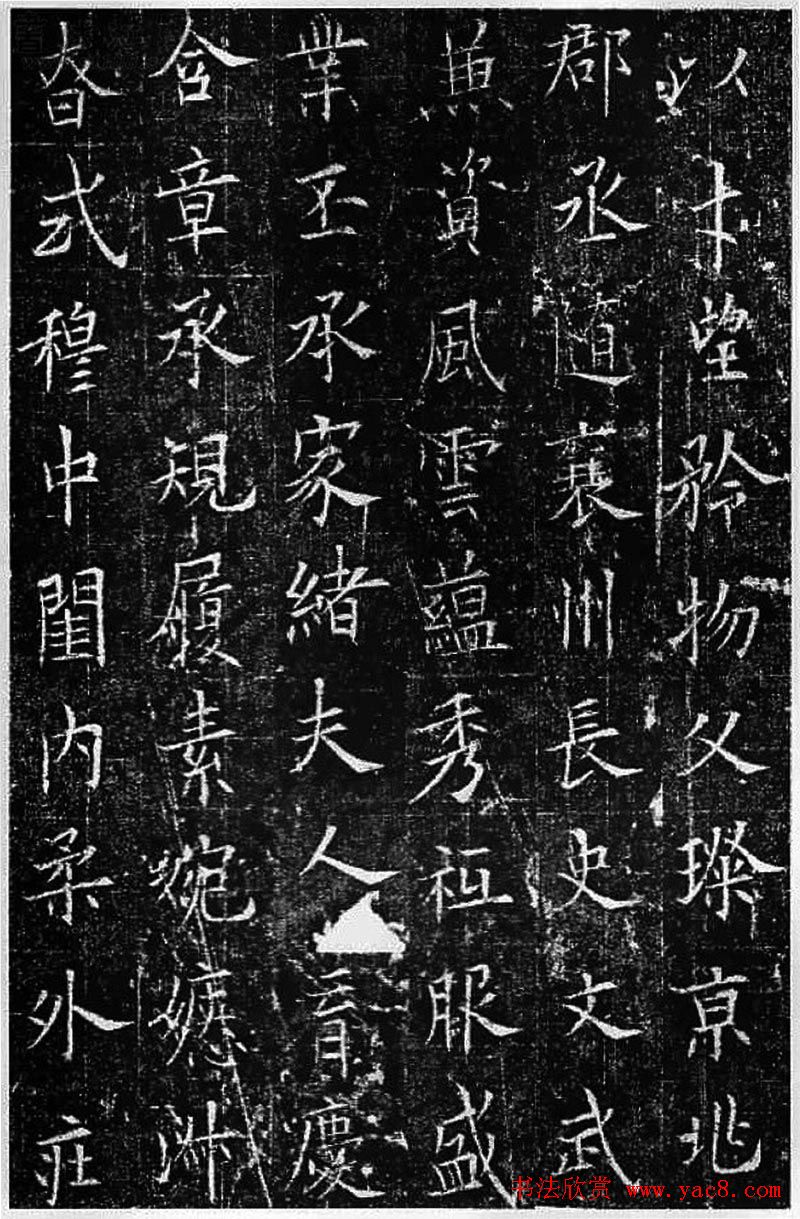 以才望矜物父璨京兆
郡丞随襄州長史文武
兼資風雲蘊秀祗服盛
業丕承家緒夫人慶
含章承規履素婉嫕淑
昚式穆中閨内柔外莊
书法欣赏 www.yac8.com